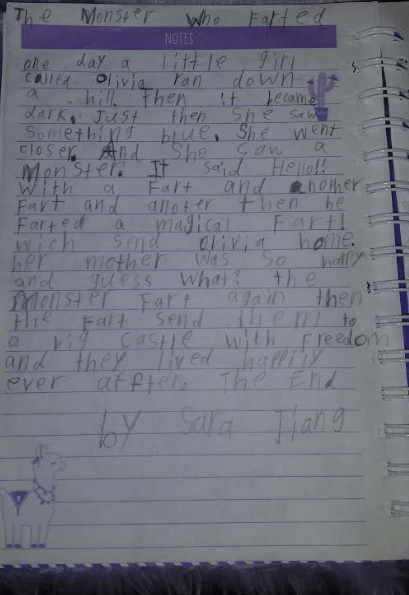 The Monster Who Farted
NOTES
one day a little girl
called Olivia ran down
a hill then it became
dark. Just then She saw
Something blue. She went
closer. And She saw a
Monster. It said Hello!!
With a Fart and another
Fart and anoter then he
Farted a magical Fart!
wich send olivia home.
her mother was so happy
and guess what? the
Monster Fart again then
the Fart send them to
a big castle with Freedom
and they lived happily
ever affter. The End
by Sara Jiang